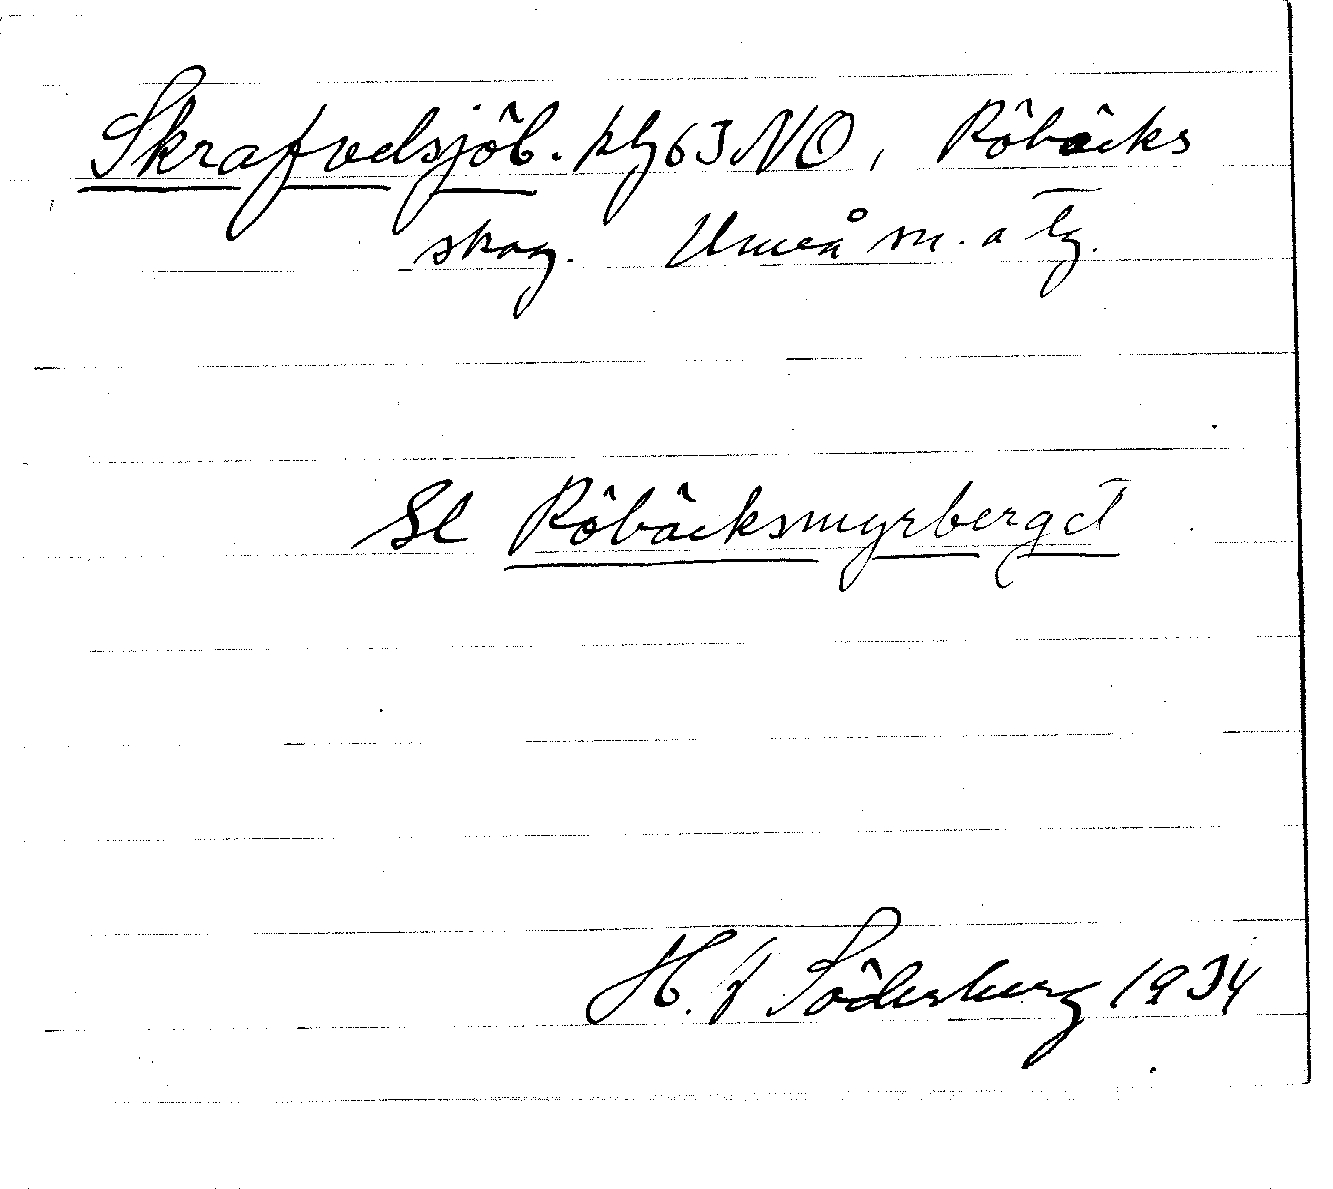 Skrafvelsjöb. kbl 63 NO, Röbäcks
skog. Umeå m. a tg.
Se Röbäcksmyrberget
H. f Söderberg 1934